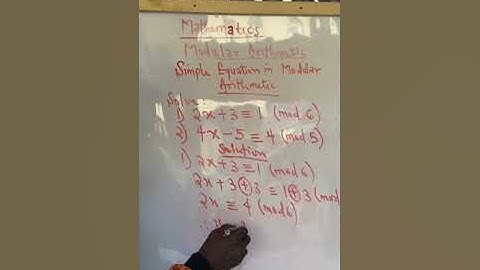 Mathematics
Modular Arithmetic
Simple Equation in Modular
Arithmetic
Solve:
1) 2x+3≡1 (mod 6)
2) 4x-5≡4 (mod 5)
Solution
1) 2x+3≡1 (mod 6)
2x+3⊕3≡1⊕3 (mod
2x≡4 (mod 6)
∴